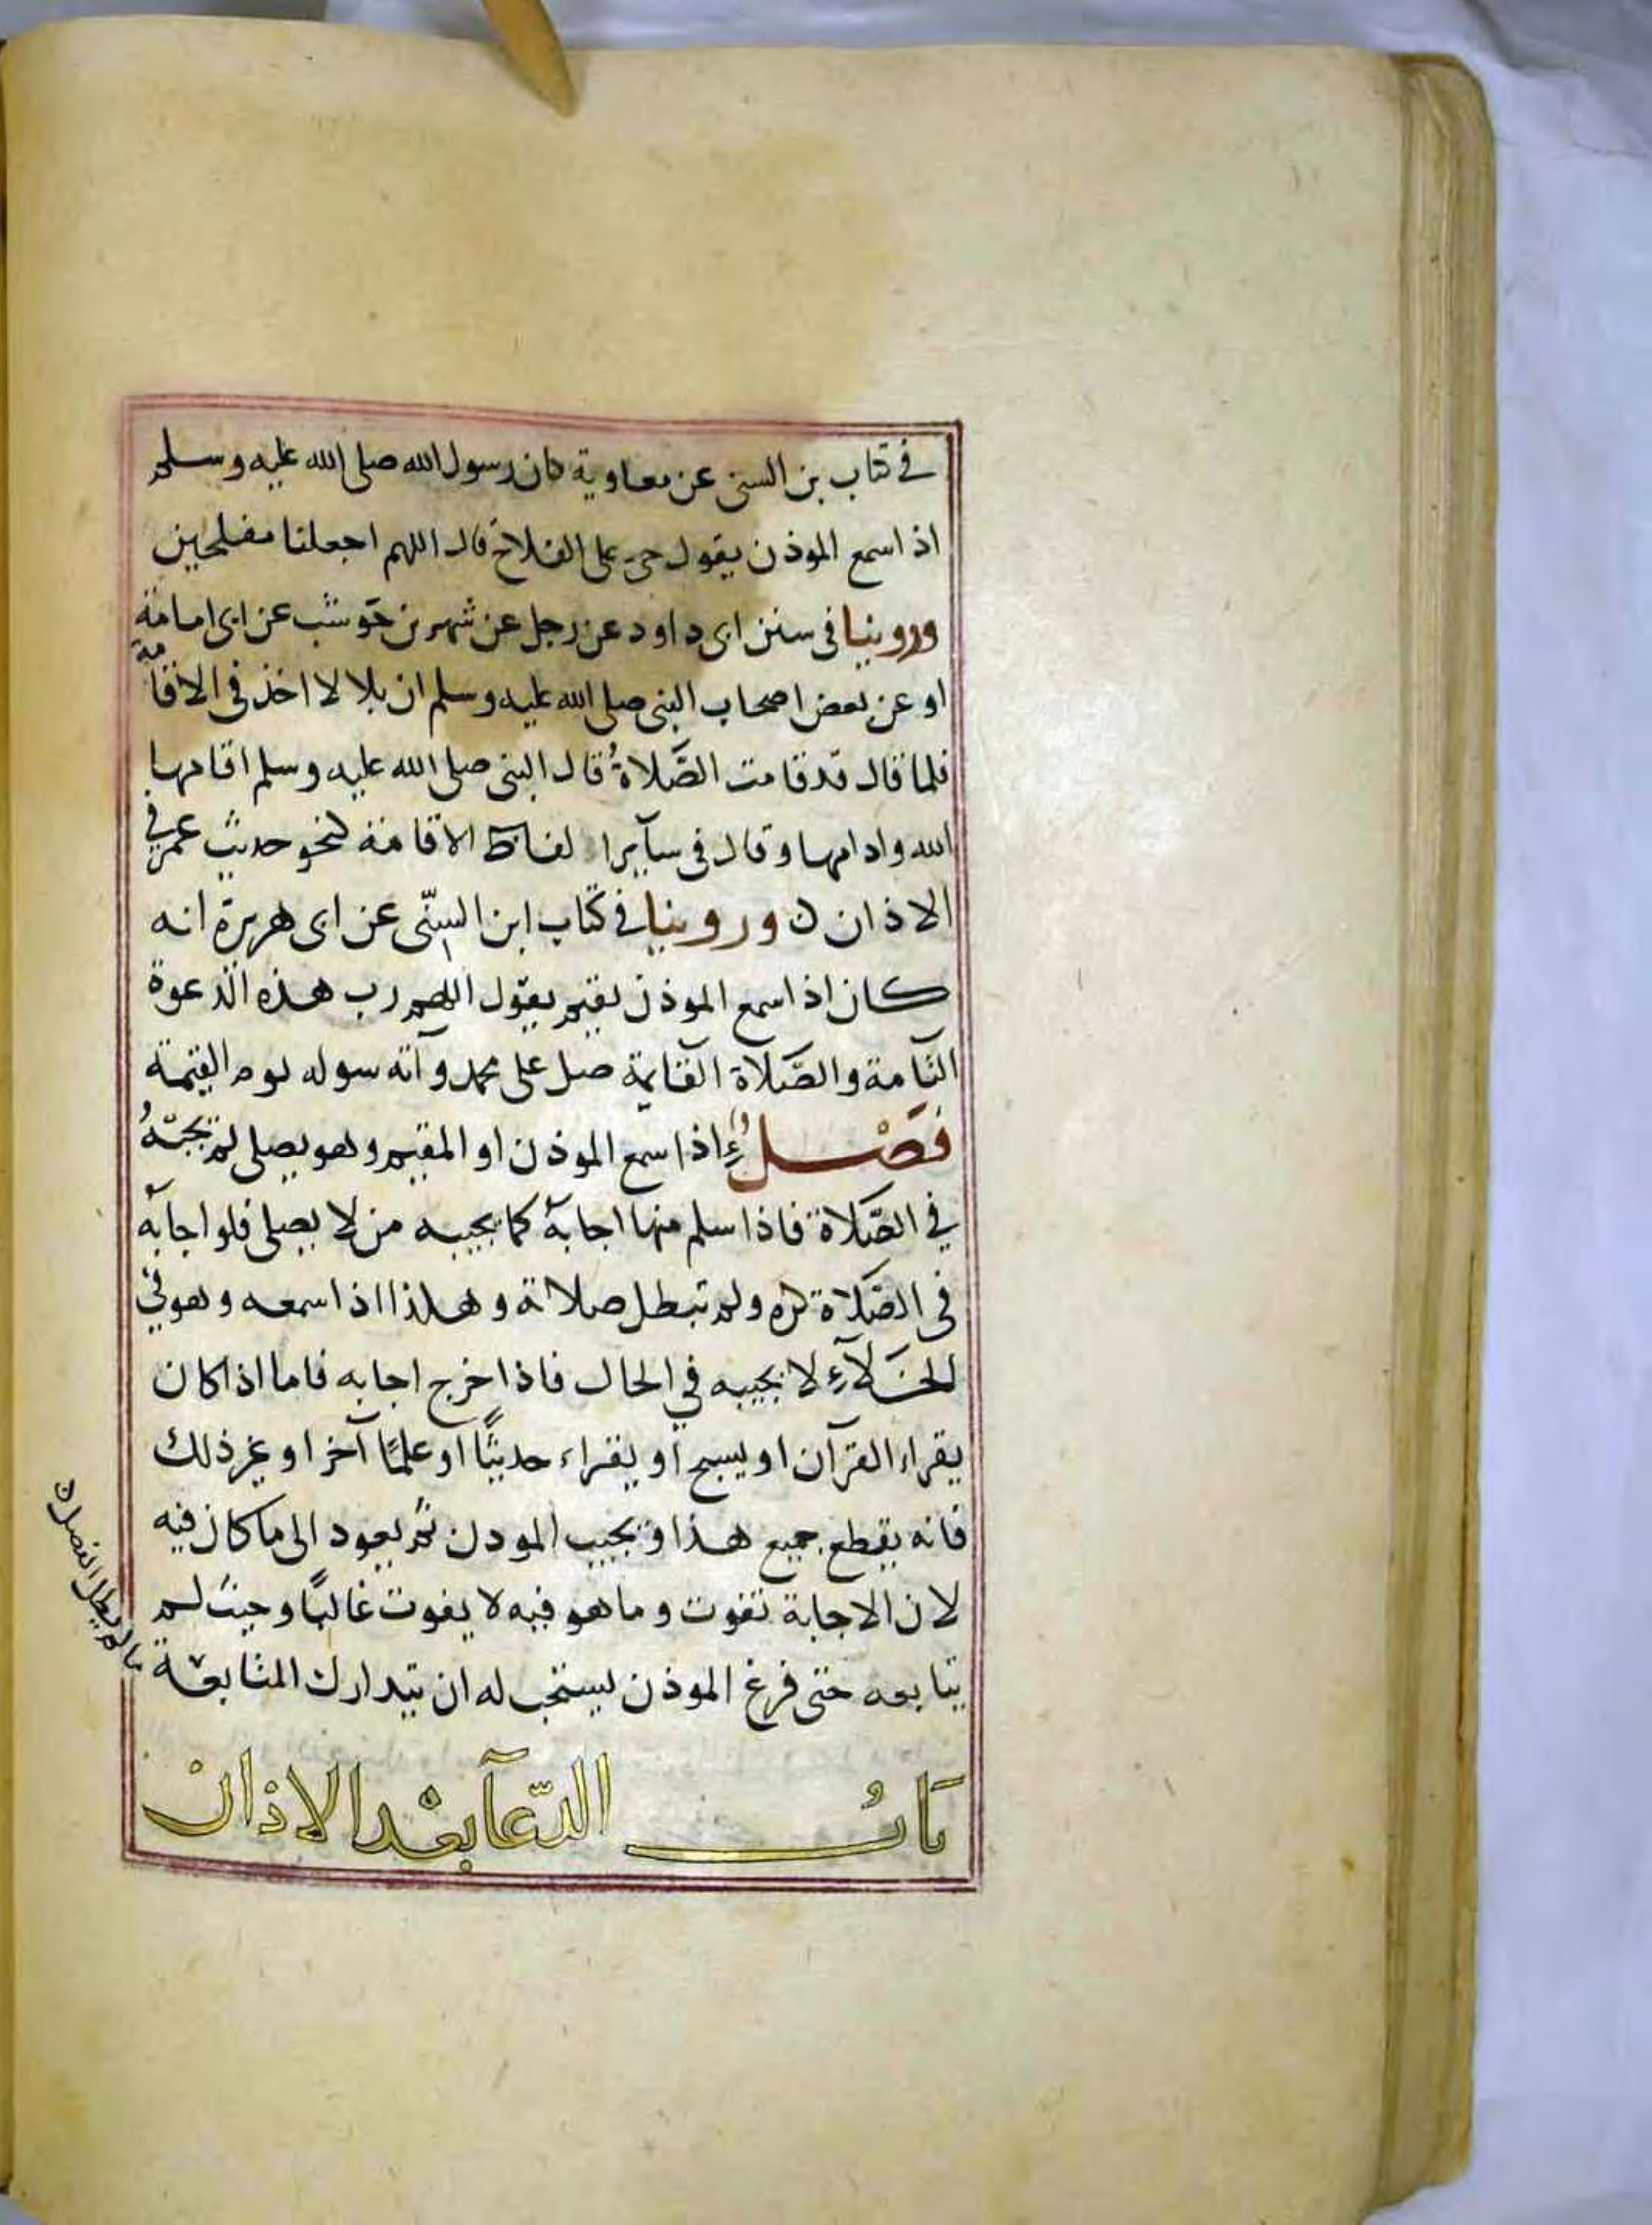 في كتاب بن السني عن معاوية كان رسول الله صلى الله عليه وسلم
اذا سمع الموذن يقول حي على الفلاح قال اللهم اجعلنا مفلحين
وروينا في سنن ابى داود عن رجل عن شهر بن حوشب عن ابى امامة
او عن بعض اصحاب النبى صلى الله عليه وسلم ان بلالا اخذ في الاقامة
فلما قال قد قامت الصَّلاةُ قال النبى صلى الله عليه وسلم اقامها
الله وادامها وقال في سآير الفاظ الاقامة لنحو حديث عمر في
الاذان ن وروينا في كتاب ابن السنّى عن ابى هريرة انه
كان اذا سمع الموذن يقيم يقول اللهم رب هذه الدعوة
التآمة والصَّلاة القايمة صل على محمد وآته سوله يوم القيمة
فَصْلٌ اذا سمع الموذن او المقيم وهو يصلى لم يجبْهُ
في الصَّلاة فاذا سلم منها اجابهُ كما يجيبه من لا يصلى فلو اجابه
في الصَّلاة كره ولم تبطل صلاته وهكذا اذا سمعه وهو في
الخَلآءِ لا يجيبه في الحال فاذا خرج اجابه فاما اذا كان
يقراء القرآن او يسبح او يقراء حديثًا او علمًا آخر او غير ذلك
فانه يقطع جميع هذا ويجيب الموذن ثم يعود الى ما كان فيه
لان الاجابة تفوت وما هو فيه لا يفوت غالبًا وحيث لم
يتابعه حتى فرغ الموذن يستحب له ان يتدارك المتابعة
ما لم يطل الفصل ن
بَابُ الدّعآ بعْد الاذان